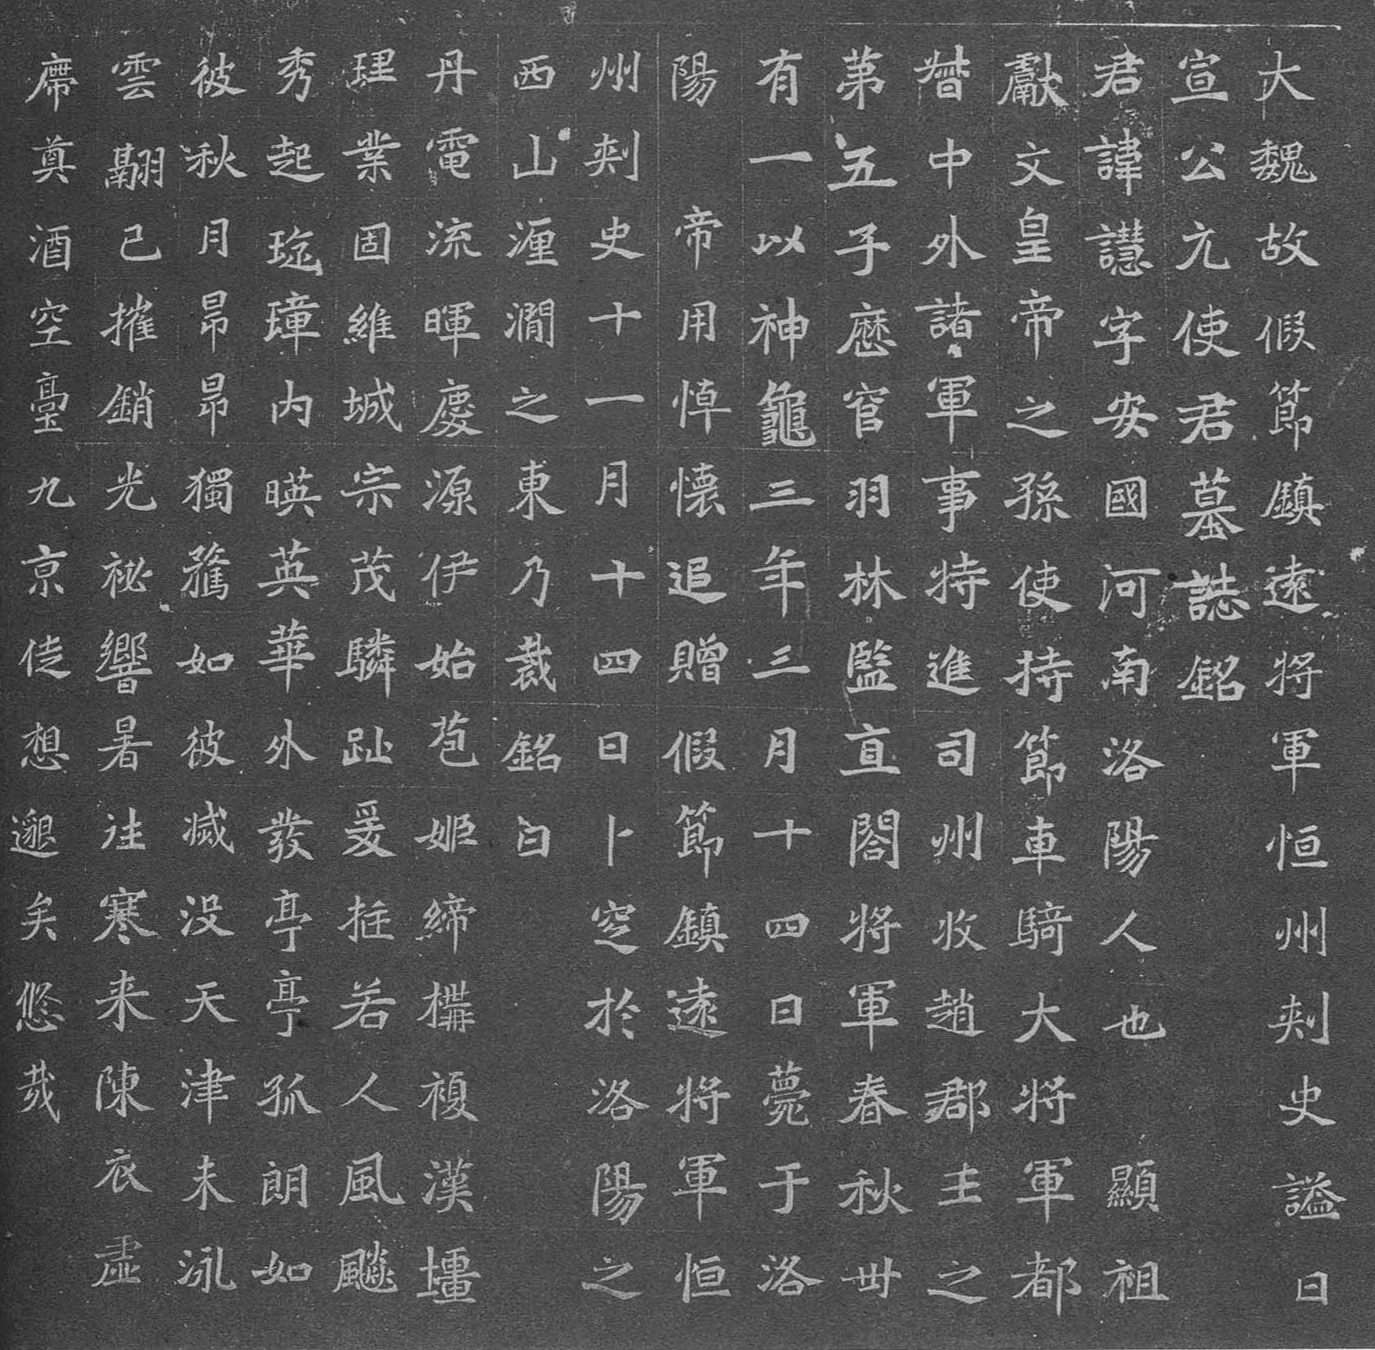 大魏故假節鎮遠將軍恒州刾史謚曰
宣公元使君墓誌銘
君諱譿字安國河南洛陽人也 顯祖
獻文皇帝之孫使持節車騎大將軍都
督中外諸軍事特進司州牧趙郡王之
第五子歷官羽林監直閤將軍春秋卌
有一以神龜三年三月十四日薨于洛
陽 帝用悼懷追贈假節鎮遠將軍恒
州刾史十一月十四日卜窆於洛陽之
西山湹澗之東乃裁銘曰
丹電流暉慶源伊始苞姬締構複漢壃
理業固維城宗茂驎趾爰挺若人風飈
秀起珳璋內暎英華外發亭亭孤朗如
彼秋月昂昂獨騖如彼滅沒天津未泳
雲翮已摧銷光祕響暑往寒来陳衣虛
席奠酒空臺九京徒想邈矣悠哉